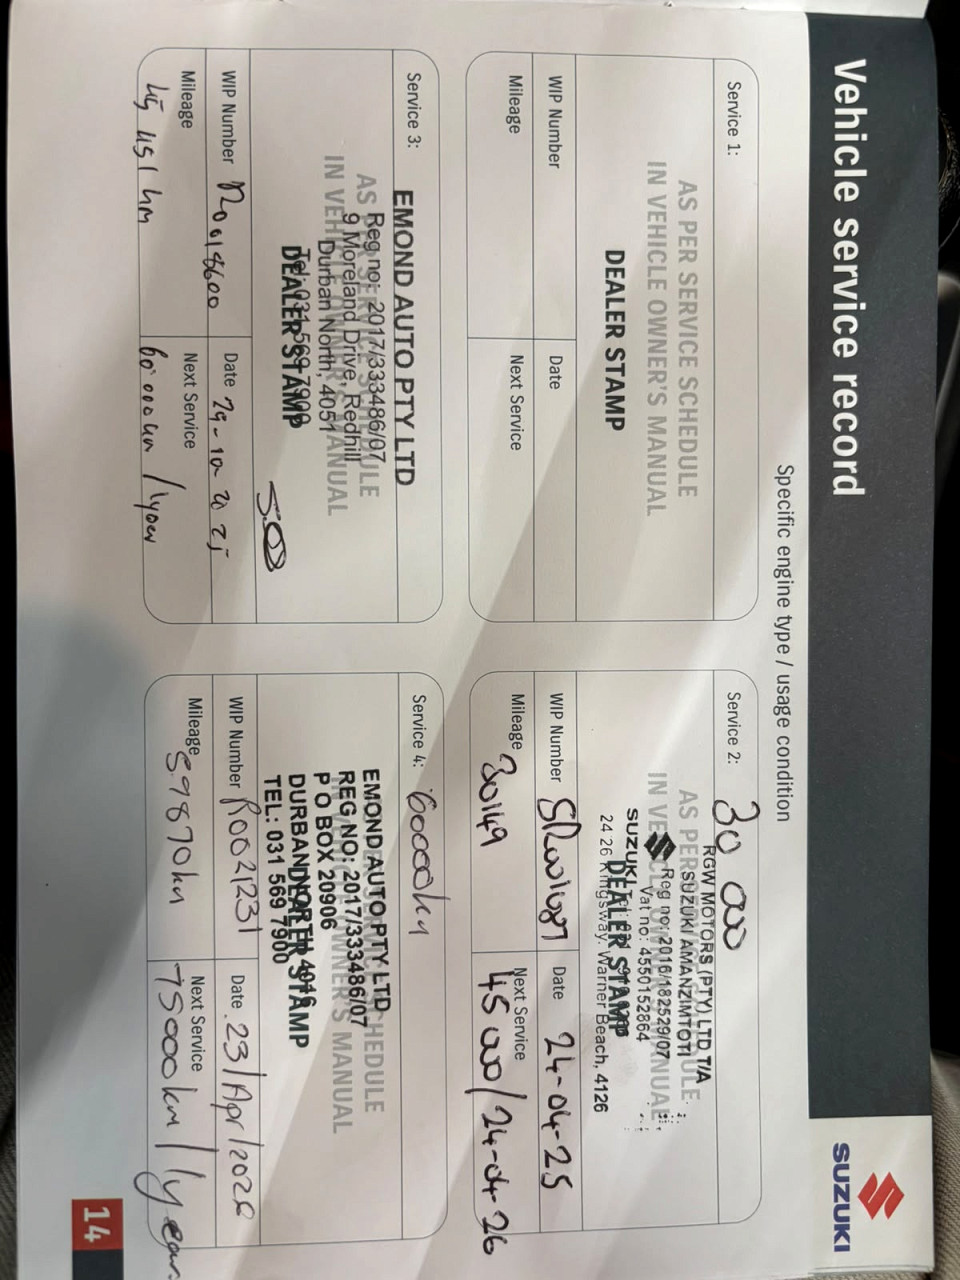 Vehicle service record
SUZUKI
Specific engine type / usage condition
Service 1:
AS PER SERVICE SCHEDULE
IN VEHICLE OWNER'S MANUAL
DEALER STAMP
WIP Number
Date
Mileage
Next Service
Service 2: 30 000
RGW MOTORS (PTY) LTD T/A
SUZUKI AMANZIMTOTI
Reg no: 2016/182529/07
Vat no: 4550152864
SUZUKI
24 26 Kingsway, Warner Beach, 4126
AS PER SERVICE SCHEDULE
IN VEHICLE OWNER'S MANUAL
DEALER STAMP
WIP Number
Date 24-04-25
Mileage 30149
Next Service 45 000/24-04-26
Service 3:
EMOND AUTO PTY LTD
Reg no: 2017/333486/07
9 Moreland Drive, Redhill
Durban North, 4051
Tel: 031 569 7900
AS PER SERVICE SCHEDULE
IN VEHICLE OWNER'S MANUAL
DEALER STAMP
WIP Number R0018600
Date 29-10-2025
Mileage 45 451 km
Next Service 60 000km / 1year
Service 4: 60000km
EMOND AUTO PTY LTD
REG NO: 2017/333486/07
P O BOX 20906
DURBAN NORTH 4016
TEL: 031 569 7900
AS PER SERVICE SCHEDULE
IN VEHICLE OWNER'S MANUAL
DEALER STAMP
WIP Number R0021231
Date 23/Apr/2026
Mileage 59870km
Next Service 75000km / 1year.
14